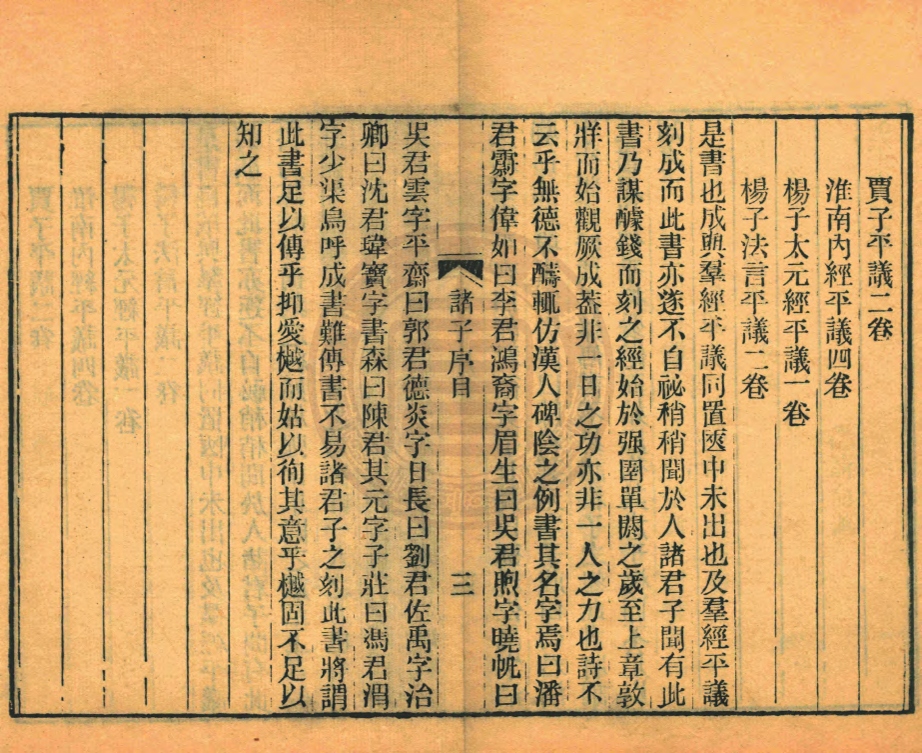 賈子平議二卷
淮南內經平議四卷
楊子太元經平議一卷
楊子法言平議二卷
是書也成與羣經平議同置匧中未出也及羣經平議
刻成而此書亦遂不自祕稍稍聞於人諸君子聞有此
書乃謀醵錢而刻之經始於强圉單閼之歲至上章敦
牂而始觀厥成蓋非一日之功亦非一人之力也詩不
云乎無德不醻輒仿漢人碑陰之例書其名字焉曰潘
君霨字偉如曰李君鴻裔字眉生曰吳君煦字曉帆曰
諸子序目
三
吳君雲字平齋曰郭君德炎字日長曰劉君佐禹字治
卿曰沈君瑋寶字書森曰陳君其元字子莊曰馮君渭
字少渠烏呼成書難傳書不易諸君子之刻此書將謂
此書足以傳乎抑愛樾而姑以徇其意乎樾固不足以
知之